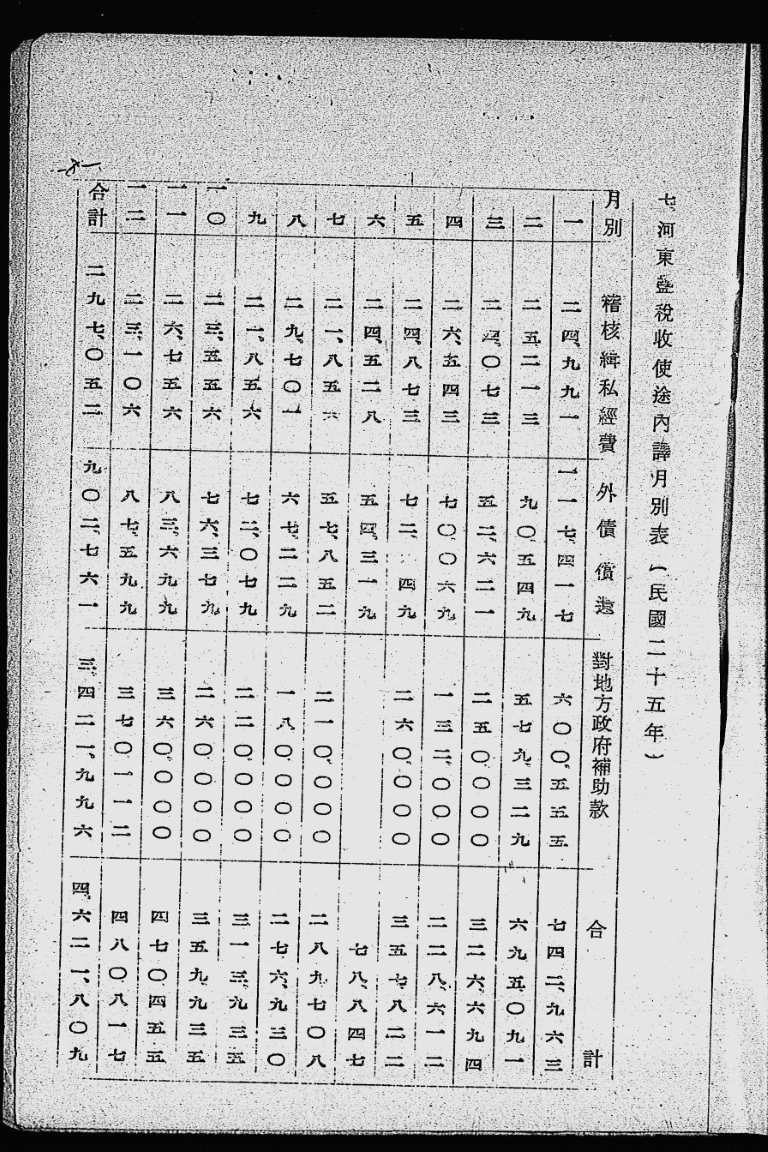 七、河東鹽稅收使途內譯月別表(民國二十五年)
月別 稽核緝私經費 外債償還 對地方政府補助款 合計
一 二四、九九一 一一七、四一七 六〇〇、五五五 七四二、九六三
二 二五、二一三 九〇、五四九 五七九、三二九 六九五、〇九一
三 二四、〇七三 五二、六二一 二五〇、〇〇〇 三二六、六九四
四 二六、五四三 七〇、〇六九 一三二、〇〇〇 二二八、六一二
五 二四、八七三 七二、四九 二六〇、〇〇〇 三五七、八二二
六 二四、五二八 五四、三一九 七八、八四七
七 二一、八五六 五七、八五二 二一〇、〇〇〇 二八九、七〇八
八 二九、七〇一 六七、二二九 一八〇、〇〇〇 二七六、九三〇
九 二一、八五六 七二、〇七九 二二〇、〇〇〇 三一三、九三五
一〇 二三、五五六 七六、三七九 二六〇、〇〇〇 三五九、九三五
一一 二六、七五六 八三、六九九 三六〇、〇〇〇 四七〇、四五五
一二 二三、一〇六 八七、五九九 三七〇、一一二 四八〇、八一七
合計 二九七、〇五二 九〇二、七六一 三、四二一、九九六 四、六二一、八〇九